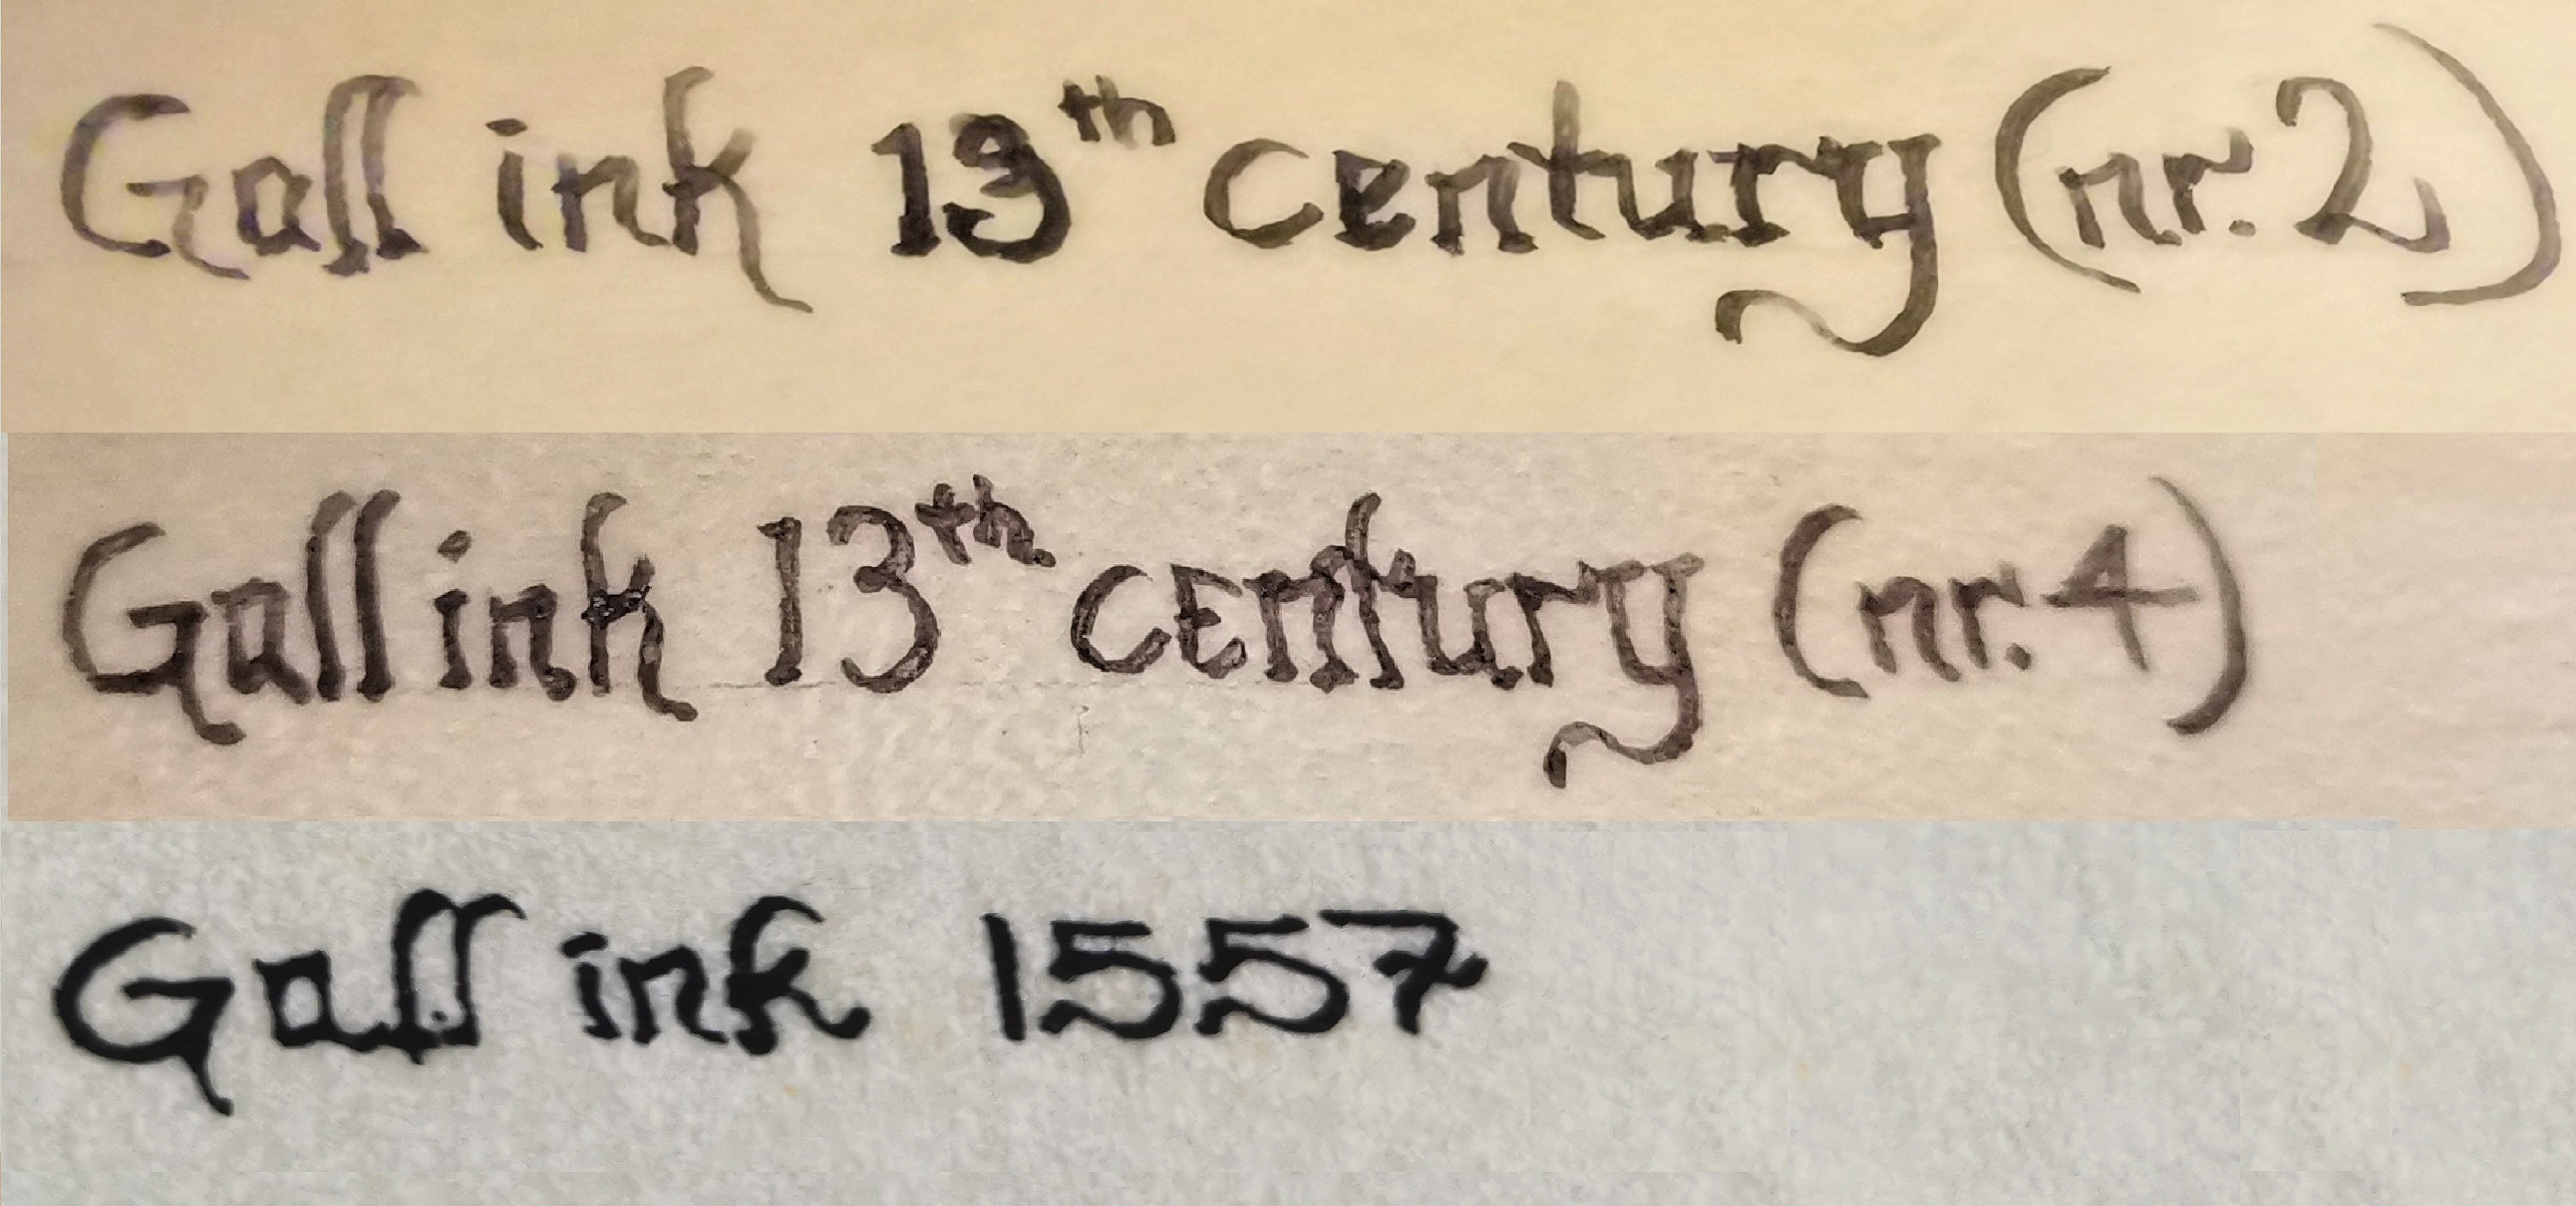 Gall ink 13th century (nr. 2)
Gall ink 13th century (nr. 4)
Gall ink 1557